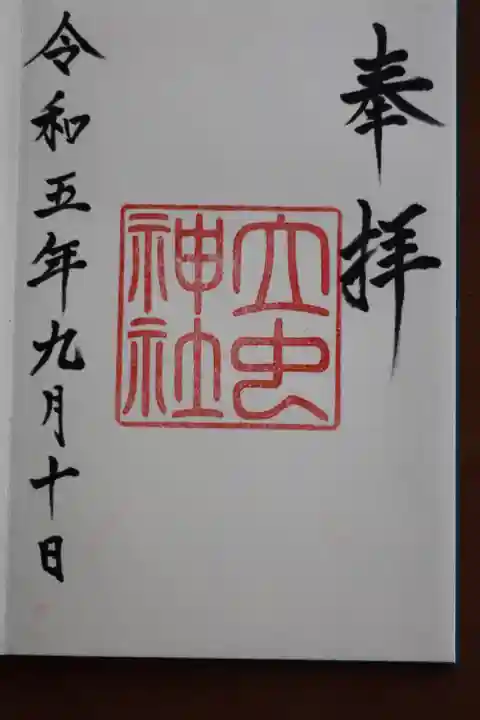 奉拝
大虫
神社
令和五年九月十日